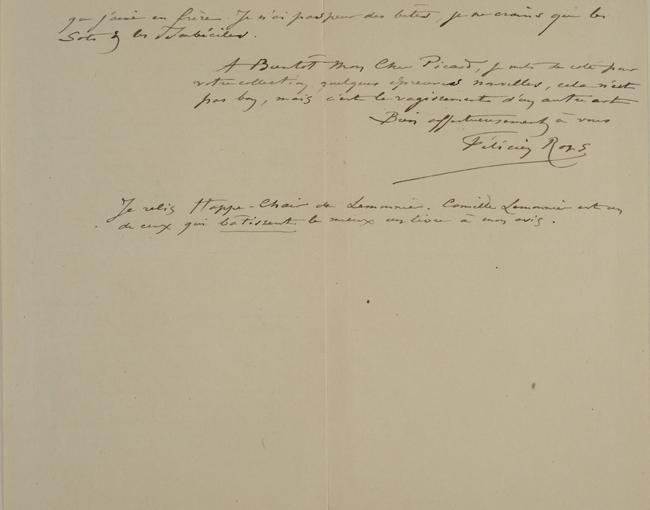 que j'aime en frère. Je n'ai pas peur des bêtes, je ne crains que les
Sots & les Imbéciles.
A Bientot Mon Cher Picard, je mets de coté pour
votre collection, quelques épreuves nouvelles, cela n'est
pas bon, mais c'est le vagissement d'un autre art
Bien affectueusement à vous
Félicien Rops
Je relis Happe-Chair de Lemonnier. Camille Lemonnier est un
de ceux qui bâtissent le mieux un livre à mon avis.